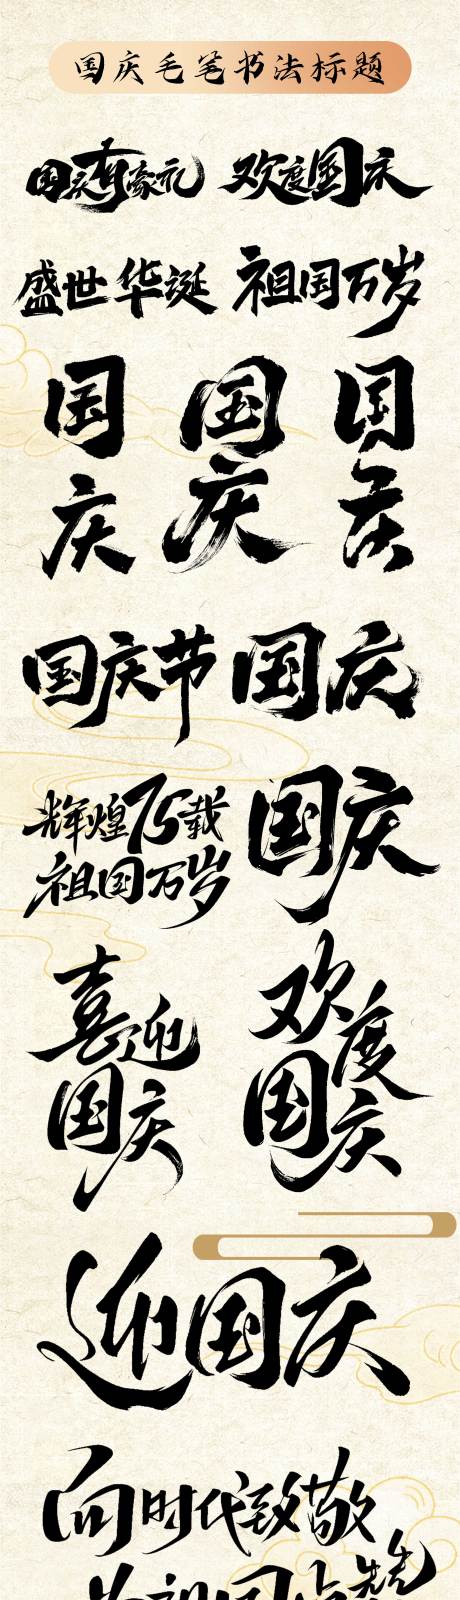 国庆毛笔书法标题
国庆有豪礼
欢度国庆
盛世华诞
祖国万岁
国庆
国庆
国庆
国庆节
国庆
辉煌75载
祖国万岁
国庆
喜迎
国庆
欢度
国庆
迎国庆
向时代致敬
为祖国点赞